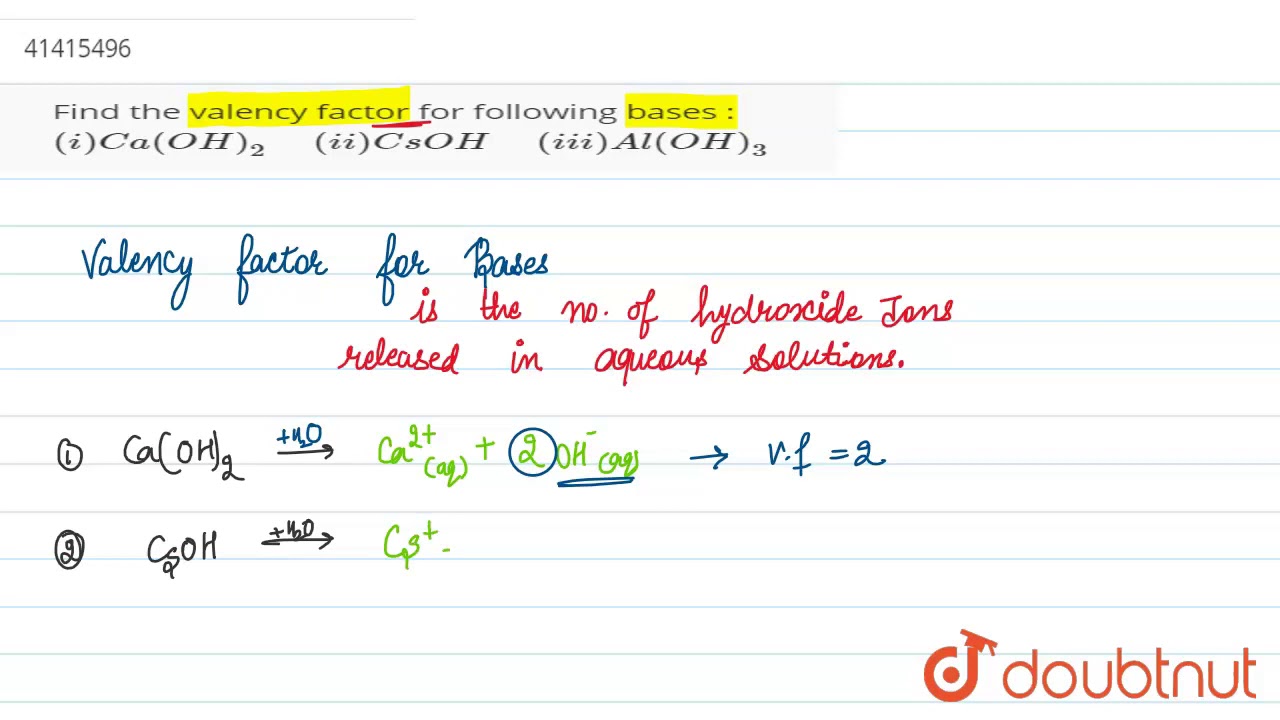 41415496
Find the valency factor for following bases :
(i)Ca(OH)₂ (ii)CsOH (iii)Al(OH)₃
Valency factor for Bases
is the no. of hydroxide Ions
released in aqueous solutions.
① Ca(OH)₂ +H₂O → Ca²⁺(aq) + 2OH⁻(aq) → v.f = 2
② CsOH +H₂O → Cs⁺ -
doubtnut